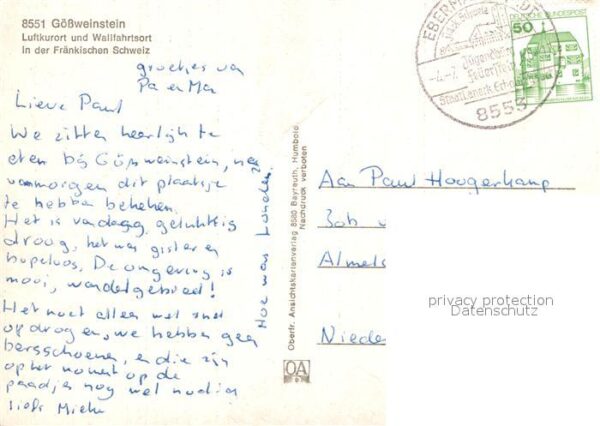 8551 Gößweinstein
Luftkurort und Wallfahrtsort
in der Fränkischen Schweiz
groetjes van
Pa en Ma
Lieve Paul
We zitten heerlijk te
eten bij Gößweinstein, na
vanmorgen dit plaatsje
te hebben bekeken.
Het is vandaag gelukkig
droog, het was gisteren
hopeloos. De omgeving is
mooi, wandelgebied!
Het moet alleen wel snel
opdrogen, we hebben geen
bergschoenen, en die zijn
op het moment op de
paadjes nog wel nodig
liefs Mieke
Hoe was Londen?
Oberfr. Ansichtskartenverlag 8580 Bayreuth, Humbold
Nachdruck verboten
OA
EBERMANNSTADT
Jugendburg
Feuerstein
8553
DEUTSCHE BUNDESPOST
50
Aan Paul Hoogerkamp
Bob
Almelo
Nieder
privacy protection
Datenschutz